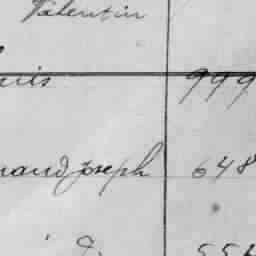 Valentin
uis 999
nand Joseph 648